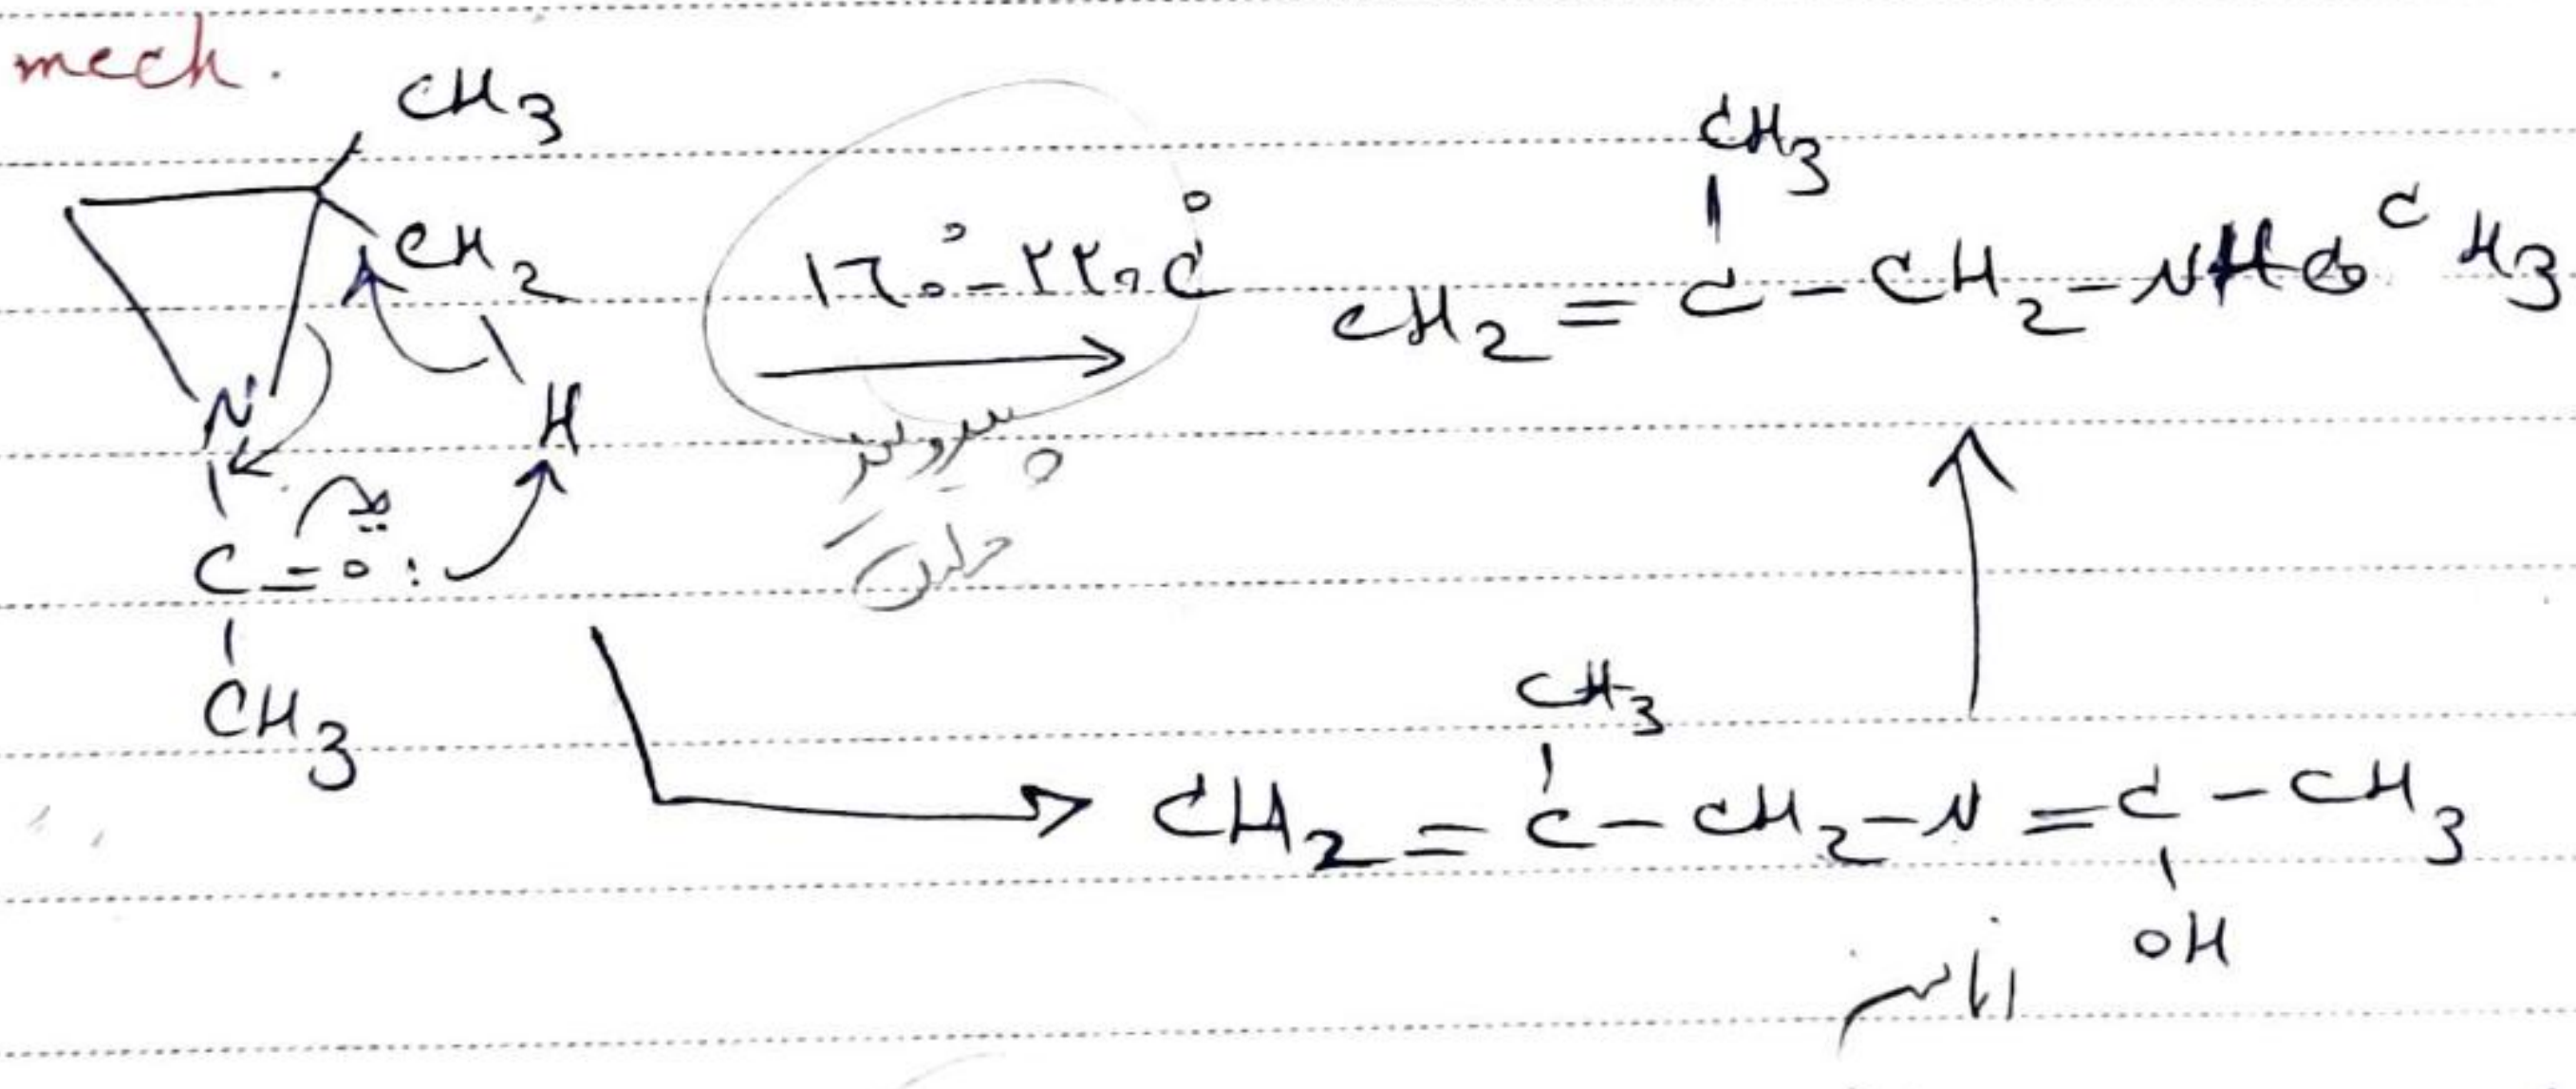 mech.
CH3
CH2
H
N
C=O:
CH3
١٦٠°-٢٢٠°C
CH3
CH2=C-CH2-NHCOCH3
CH3
CH2=C-CH2-N=C-CH3
OH